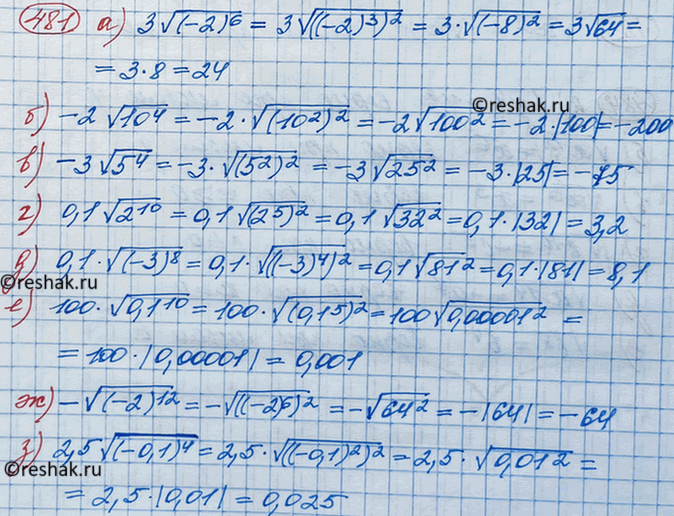 481 а) 3√(-2)⁶ = 3√((-2)³)² = 3·√(-8)² = 3√64 =
= 3·8 = 24
©reshak.ru
б) -2√10⁴ = -2·√(10²)² = -2√100² = -2·|100| = -200
в) -3√5⁴ = -3·√(5²)² = -3√25² = -3·|25| = -75
г) 0,1√2¹⁰ = 0,1√(2⁵)² = 0,1√32² = 0,1·|32| = 3,2
д) 0,1·√(-3)⁸ = 0,1·√((-3)⁴)² = 0,1√81² = 0,1·|81| = 8,1
©reshak.ru
е) 100·√0,1¹⁰ = 100·√(0,1⁵)² = 100√0,00001² =
= 100·|0,00001| = 0,001
ж) -√(-2)¹² = -√((-2⁶)² = -√64² = -|64| = -64
з) 2,5√(-0,1)⁴ = 2,5·√((-0,1)²)² = 2,5·√0,01² =
©reshak.ru
= 2,5·|0,01| = 0,025